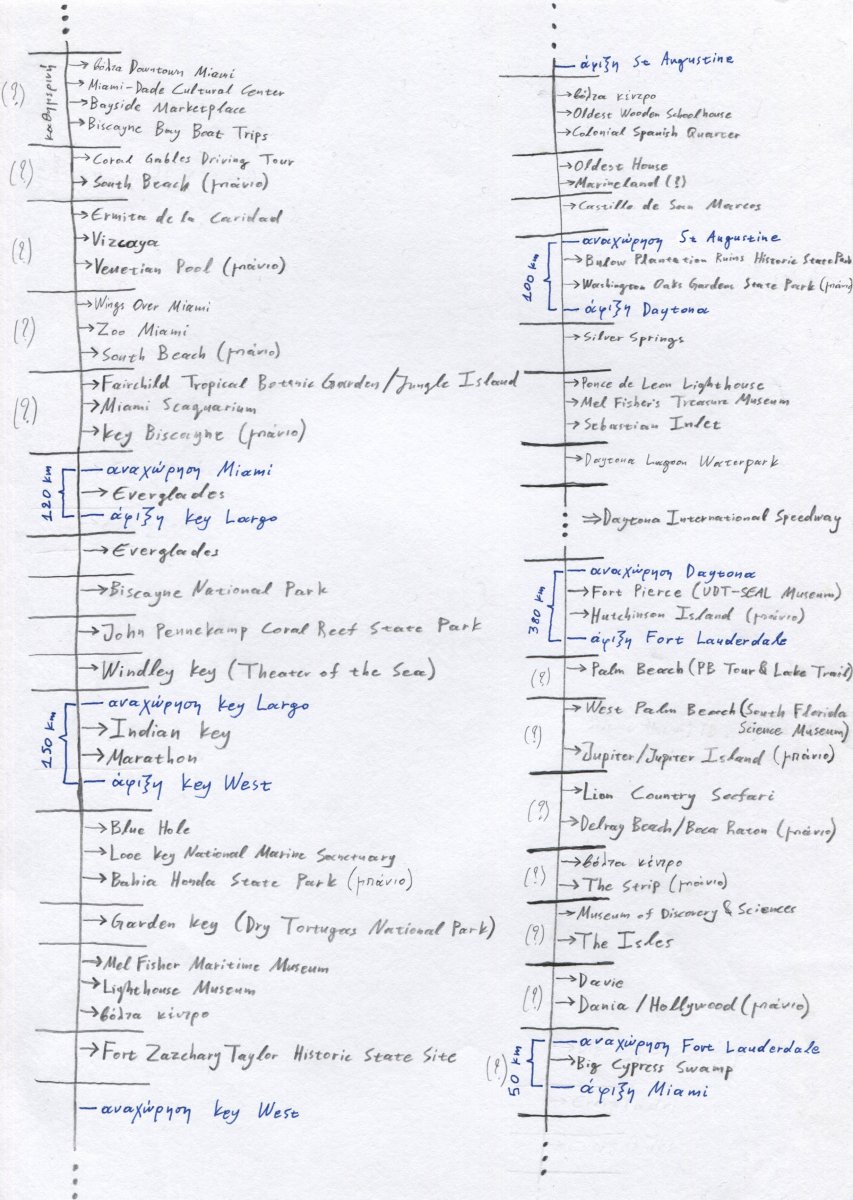 (?)
καθημερινή
→ βόλτα Downtown Miami
→ Miami-Dade Cultural Center
→ Bayside Marketplace
→ Biscayne Bay Boat Trips
(?)
→ Coral Gables Driving Tour
→ South Beach (μπάνιο)
(?)
→ Ermita de la Caridad
→ Vizcaya
→ Venetian Pool (μπάνιο)
(?)
→ Wings Over Miami
→ Zoo Miami
→ South Beach (μπάνιο)
(?)
→ Fairchild Tropical Botanic Garden/Jungle Island
→ Miami Seaquarium
→ Key Biscayne (μπάνιο)
120 km
αναχώρηση Miami
→ Everglades
άφιξη Key Largo
→ Everglades
→ Biscayne National Park
→ John Pennekamp Coral Reef State Park
→ Windley Key (Theater of the Sea)
150 km
αναχώρηση Key Largo
→ Indian Key
→ Marathon
άφιξη Key West
→ Blue Hole
→ Looe Key National Marine Sanctuary
→ Bahia Honda State Park (μπάνιο)
→ Garden Key (Dry Tortugas National Park)
→ Mel Fisher Maritime Museum
→ Lighthouse Museum
→ βόλτα κέντρο
→ Fort Zazchary Taylor Historic State Site
αναχώρηση Key West
άφιξη St Augustine
→ βόλτα κέντρο
→ Oldest Wooden Schoolhouse
→ Colonial Spanish Quarter
→ Oldest House
→ Marineland (?)
→ Castillo de San Marcos
100 km
αναχώρηση St Augustine
→ Bulow Plantation Ruins Historic State Park
→ Washington Oaks Gardens State Park (μπάνιο)
άφιξη Daytona
→ Silver Springs
→ Ponce de Leon Lighthouse
→ Mel Fisher's Treasure Museum
→ Sebastian Inlet
→ Daytona Lagoon Waterpark
⇒ Daytona International Speedway
380 km
αναχώρηση Daytona
→ Fort Pierce (UDT-SEAL Museum)
→ Hutchinson Island (μπάνιο)
άφιξη Fort Lauderdale
(?)
→ Palm Beach (PB Tour & Lake Trail)
(?)
→ West Palm Beach (South Florida
Science Museum)
→ Jupiter/Jupiter Island (μπάνιο)
(?)
→ Lion Country Safari
→ Delray Beach/Boca Raton (μπάνιο)
(?)
→ βόλτα κέντρο
→ The Strip (μπάνιο)
(?)
→ Museum of Discovery & Sciences
→ The Isles
(?)
→ Davie
→ Dania/Hollywood (μπάνιο)
(?)
50 km
αναχώρηση Fort Lauderdale
→ Big Cypress Swamp
άφιξη Miami